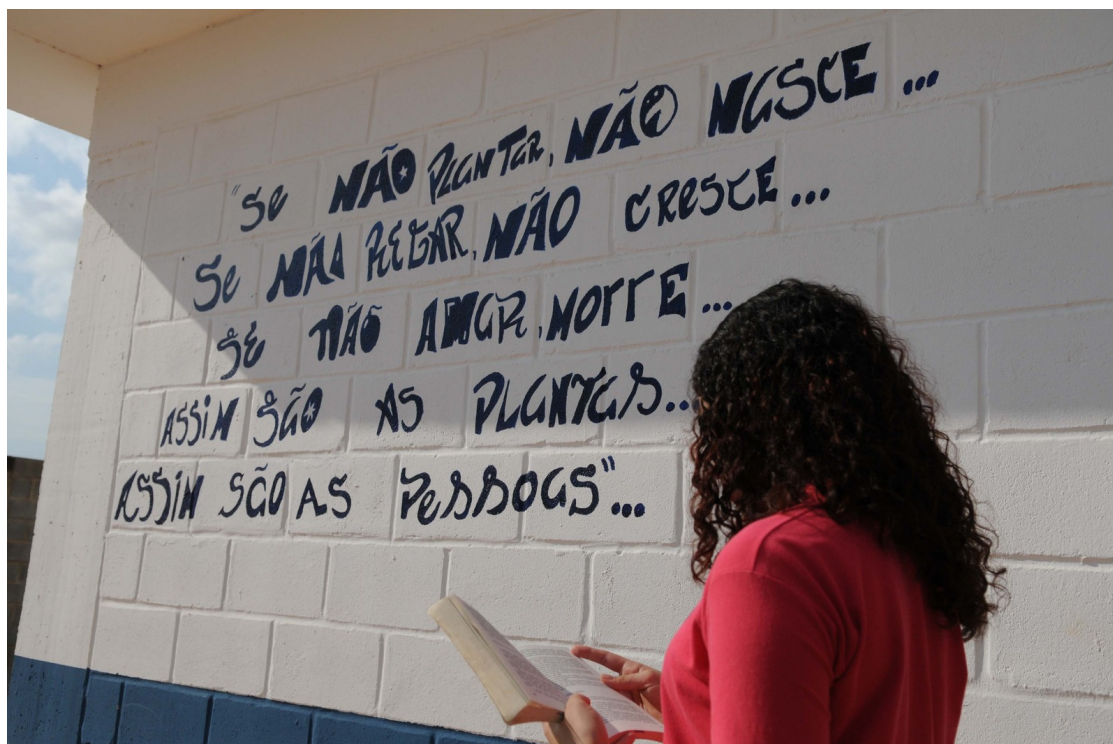 "Se NÃO PLANTAR, NÃO NASCE...
Se NÃO REGAR, NÃO CRESCE...
SE NÃO AMAR, MORRE...
ASSIM SÃO AS PLANTAS...
ASSIM SÃO AS PESSOAS"...